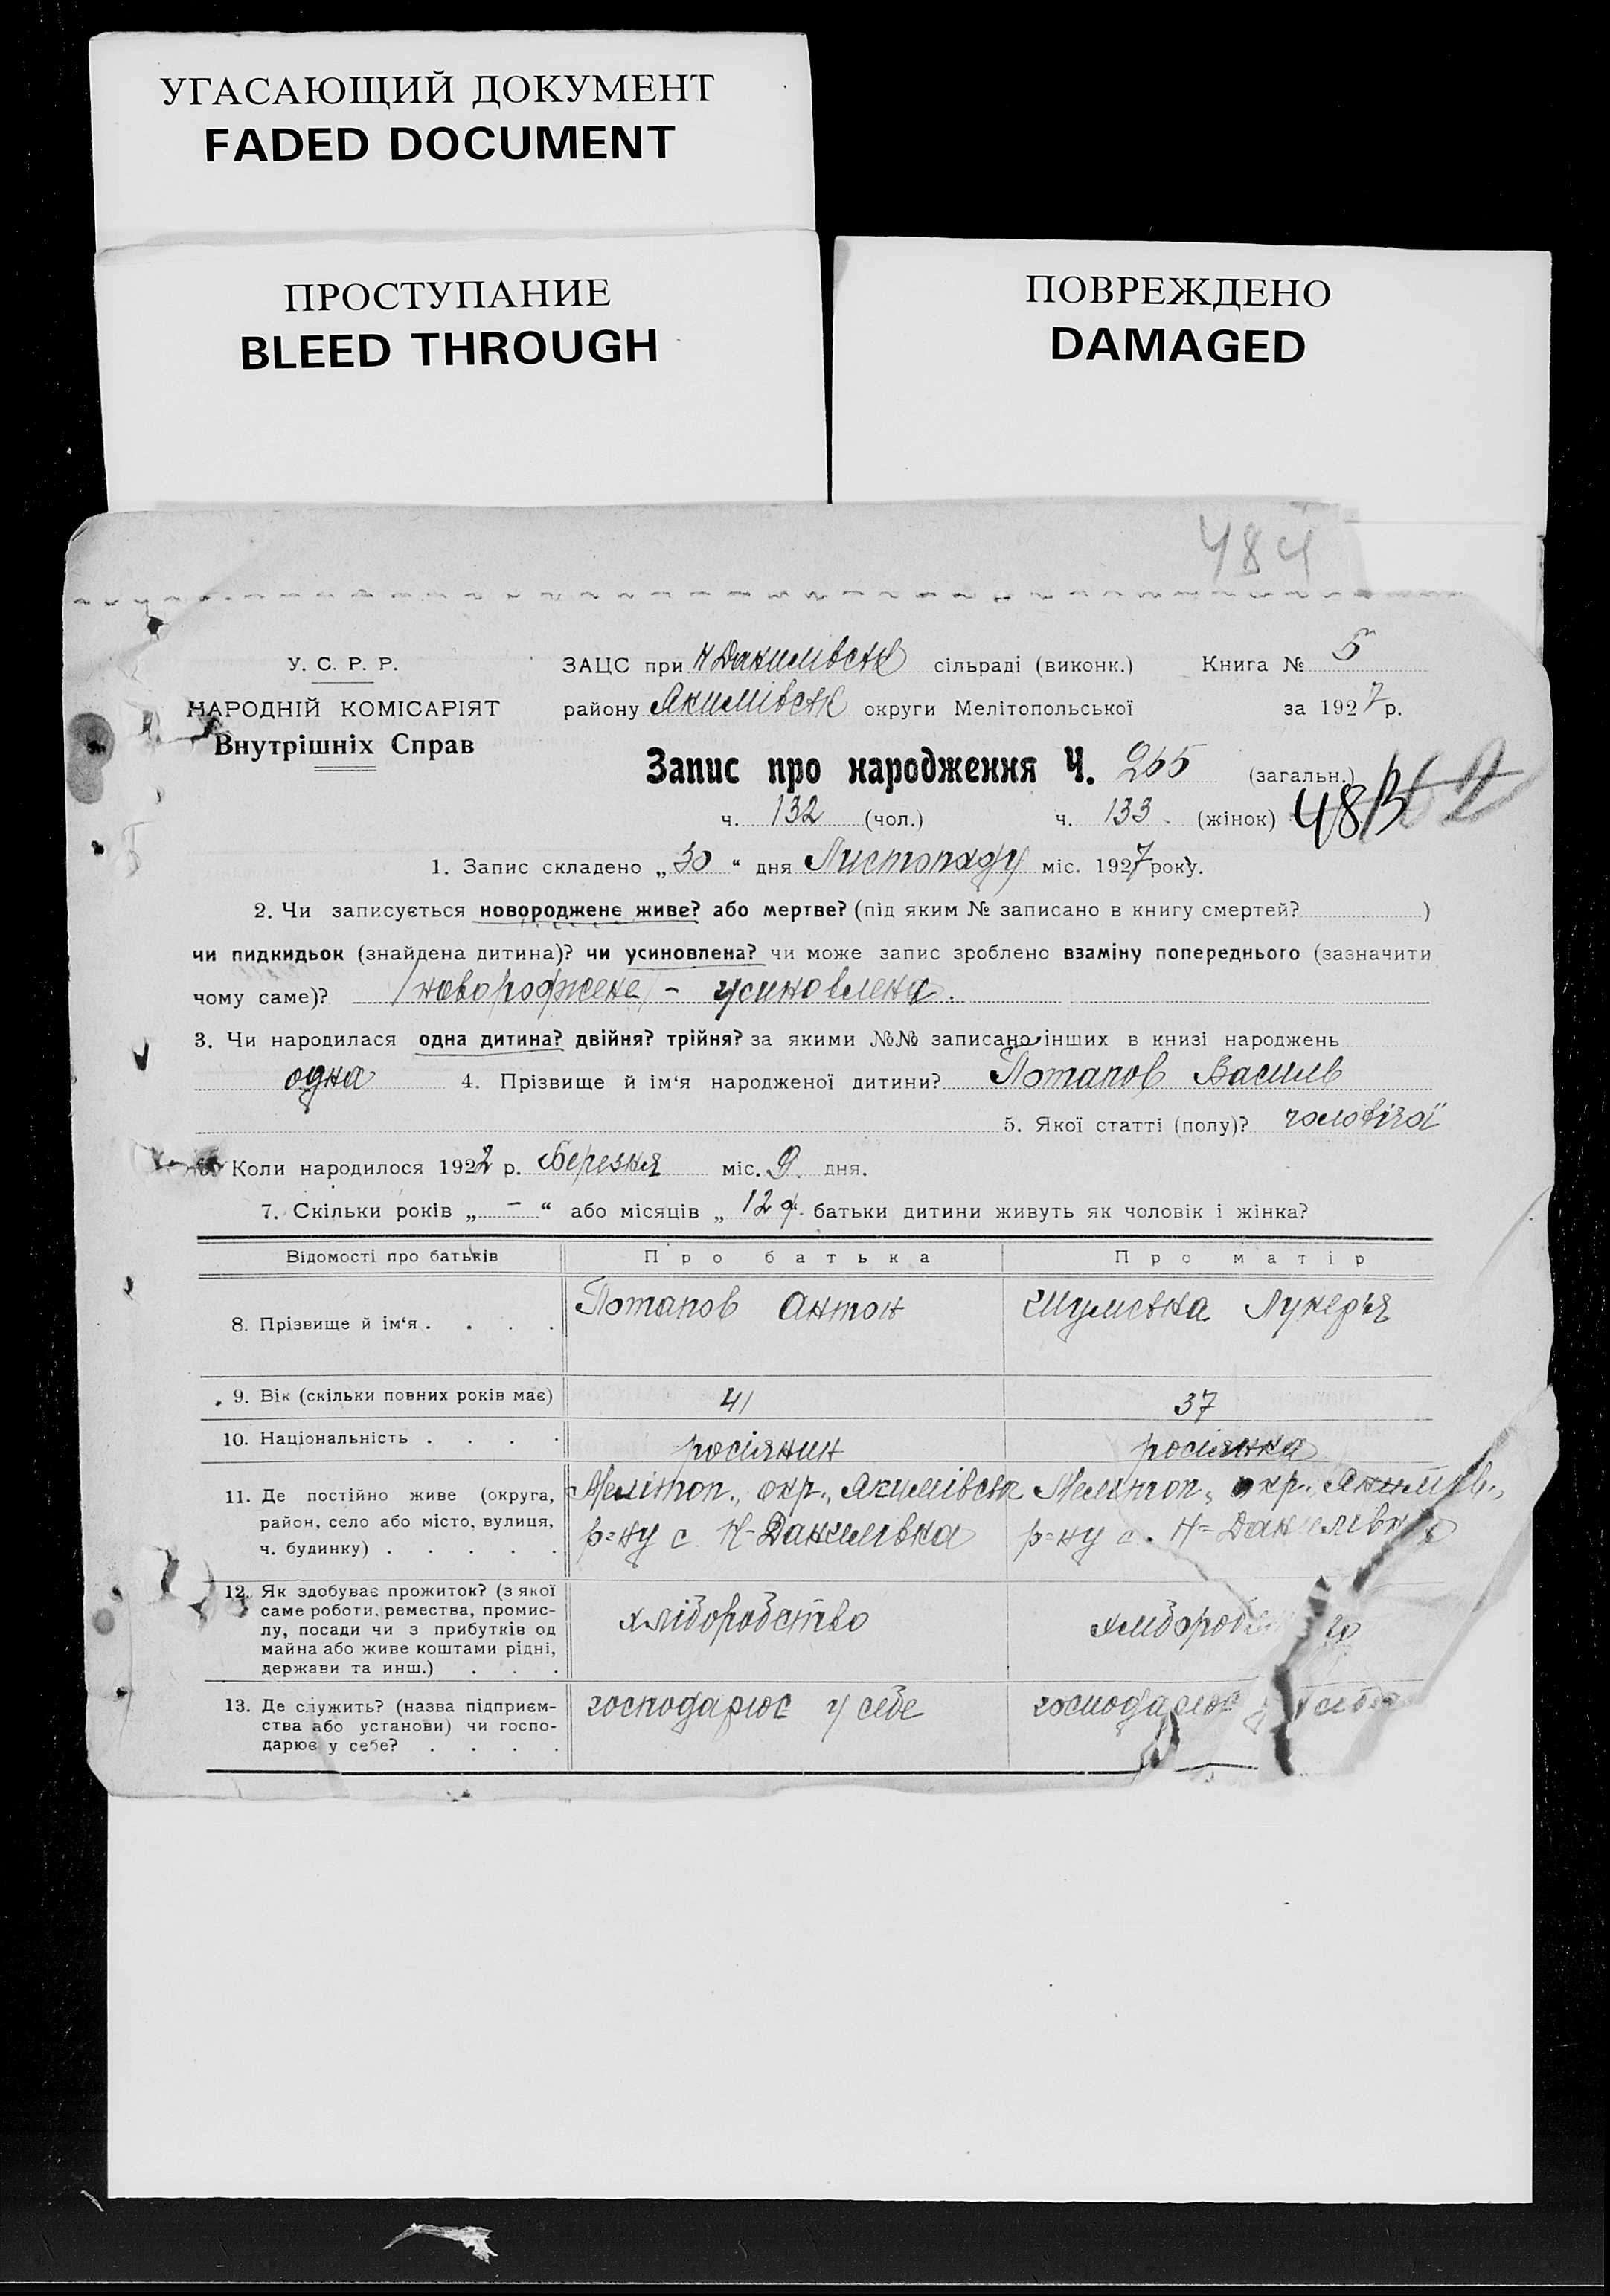 УГАСАЮЩИЙ ДОКУМЕНТ
FADED DOCUMENT
ПРОСТУПАНИЕ
BLEED THROUGH
ПОВРЕЖДЕНО
DAMAGED
484
У. С. Р. Р.
НАРОДНІЙ КОМІСАРІЯТ
Внутрішніх Справ
ЗАЦС при Н Данилівськ сільраді (виконк.) Книга № 5
району Якимівськ округи Мелітопольської за 1927 р.
Запис про народження Ч. 265 (загальн.)
ч. 132 (чол.) ч. 133. (жінок) 483
1. Запис складено „ 30 “ дня Листопаду міс. 1927 року.
2. Чи записується новороджене живе? або мертве? (під яким № записано в книгу смертей? )
чи пидкидьок (знайдена дитина)? чи усиновлена? чи може запис зроблено взаміну попереднього (зазначити
чому саме)? новороджене - усиновлена.
3. Чи народилася одна дитина? двійня? трійня? за якими №№ записано інших в книзі народжень
одна 4. Прізвище й ім‘я народженої дитини? Потапов Василь
5. Якої статті (полу)? чоловічої
6. Коли народилося 1922 р. Березня міс. 9. дня.
7. Скільки років „ - “ або місяців „ 12 р. батьки дитини живуть як чоловік і жінка?
Відомості про батьків Про батька Про матір
8. Прізвище й ім‘я . . . . Потапов Антон Шумська Лукерья
9. Вік (скільки повних років має) 41 37
10. Національність . . . . росіянин росіянка
11. Де постійно живе (округа, район, село або місто, вулиця, ч. будинку) . . . . .
Меліноп., окр., Якимівськ
р=ну с. Н-Данилівка
Мелітоп., окр., Якимів.,
р=ну с. Н=Данилівка
12. Як здобуває прожиток? (з якої
саме роботи, ремества, промис-
лу, посади чи з прибутків од
майна або живе коштами рідні,
держави та инш.) . . .
хліборобство хліборобство
13. Де служить? (назва підприєм-
ства або установи) чи госпо-
дарює у себе? . . . .
господарює у себе господарює у себе